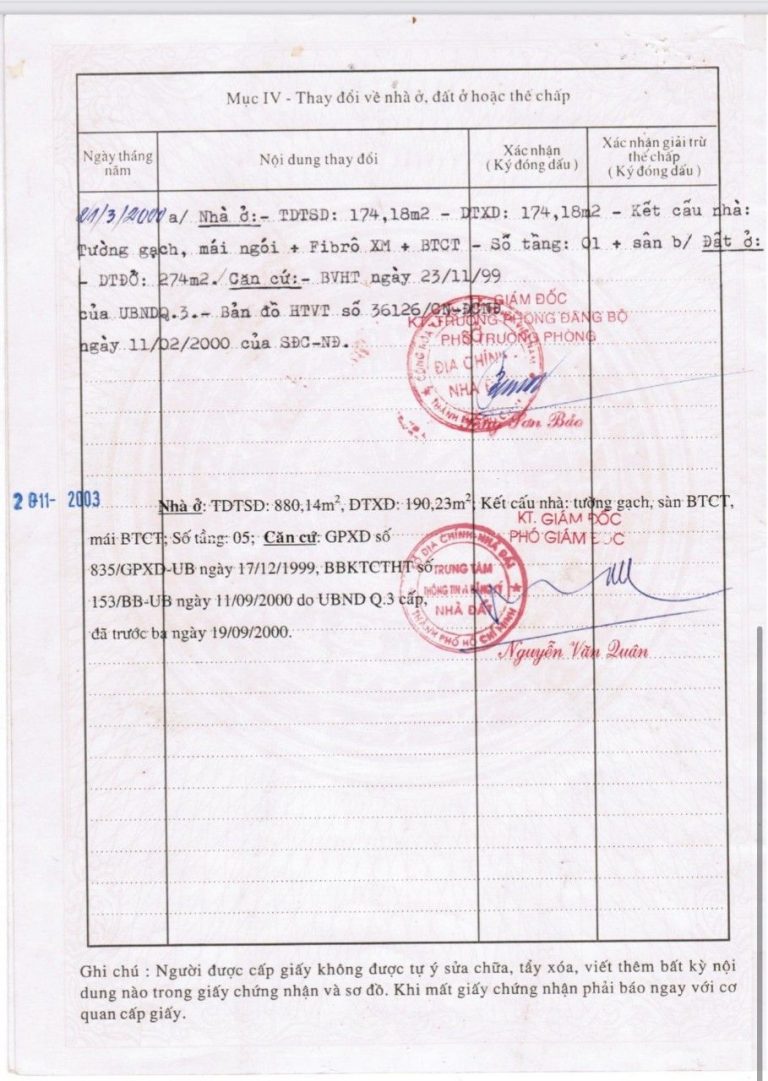 Mục IV - Thay đổi về nhà ở, đất ở hoặc thế chấp
Ngày tháng năm
Nội dung thay đổi
Xác nhận
( Ký đóng dấu )
Xác nhận giải trừ
thế chấp
( Ký đóng dấu )
21/3/2000 a/ Nhà ở:- TDTSD: 174,18m2 - DTXD: 174,18m2 - Kết cấu nhà:
Tường gạch, mái ngói + Fibrô XM + BTCT - Số tầng: 01 + sân b/ Đất ở:
- DTĐỞ: 274m2./ Căn cứ:- BVHT ngày 23/11/99
của UBNDQ.3.- Bản đồ HTVT số 36126/CN-ĐCNĐ
ngày 11/02/2000 của SĐC-NĐ.
GIÁM ĐỐC
KT. TRƯỞNG PHÒNG ĐĂNG BỘ
PHÓ TRƯỞNG PHÒNG
SỞ
ĐỊA CHÍNH
NHÀ
Sơn Bảo
2003
Nhà ở: TDTSD: 880,14m², DTXD: 190,23m²; Kết cấu nhà: tường gạch, sàn BTCT,
mái BTCT; Số tầng: 05; Căn cứ: GPXD số
835/GPXD-UB ngày 17/12/1999, BBKTCTHT số
153/BB-UB ngày 11/09/2000 do UBND Q.3 cấp,
đã trước bạ ngày 19/09/2000.
KT. GIÁM ĐỐC
PHÓ GIÁM ĐỐC
SỞ ĐỊA CHÍNH-NHÀ ĐẤT
TRUNG TÂM
THÔNG TIN & ĐĂNG KÝ
NHÀ ĐẤT
THÀNH PHỐ HỒ CHÍ MINH
Nguyễn Văn Quân
Ghi chú : Người được cấp giấy không được tự ý sửa chữa, tẩy xóa, viết thêm bất kỳ nội
dung nào trong giấy chứng nhận và sơ đồ. Khi mất giấy chứng nhận phải báo ngay với cơ
quan cấp giấy.